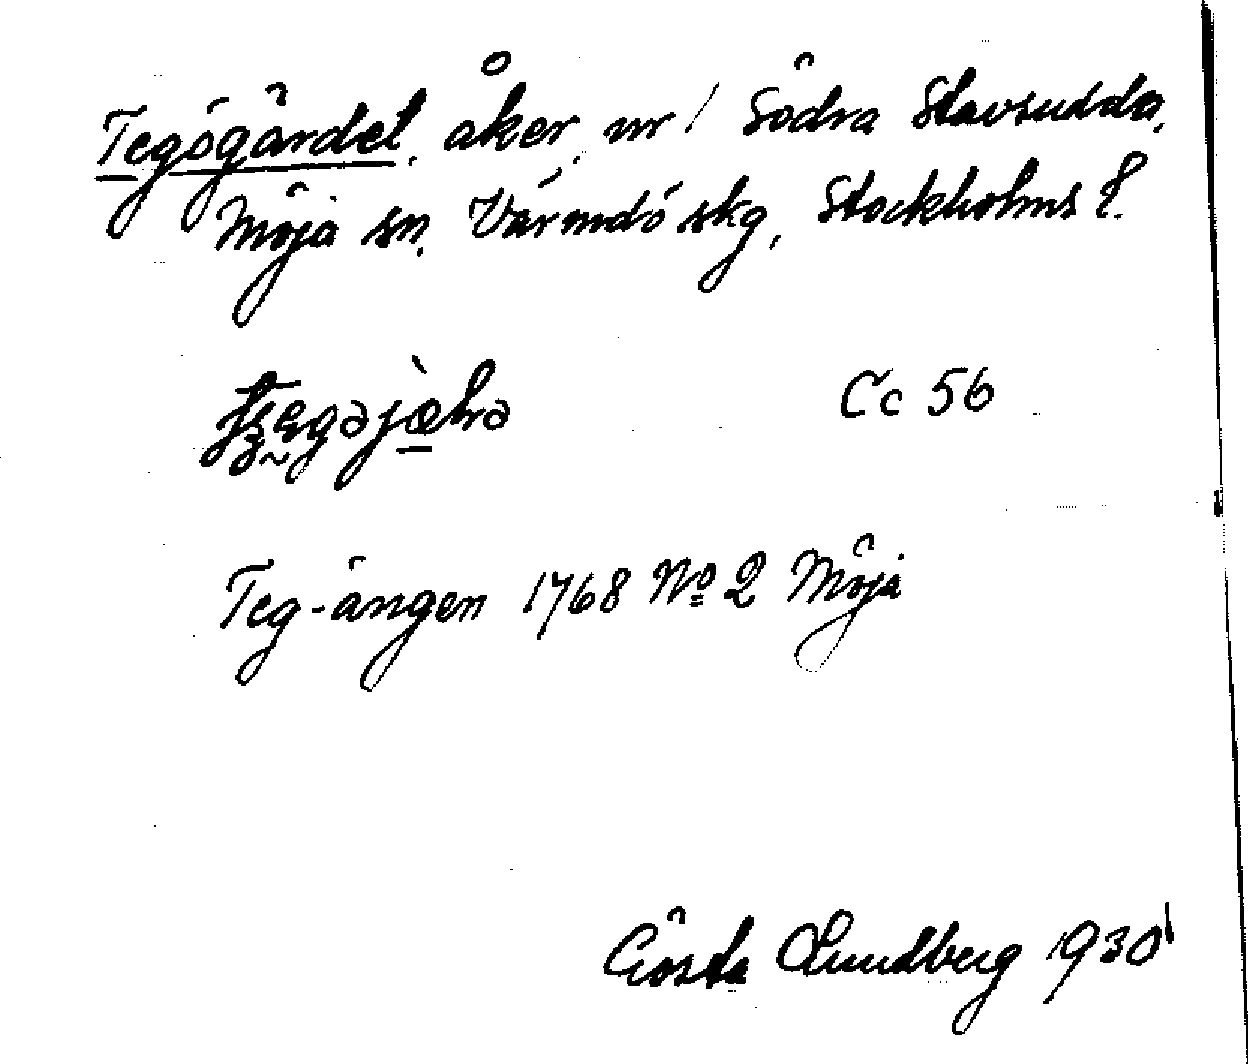 Tegögärdet, åker, nr 1 Södra Stavsudda,
Möja sn, Värmdö skg, Stockholms l.
Cc 56
Teg-ängen 1768 No 2 Möja
Gösta Lundberg 1930